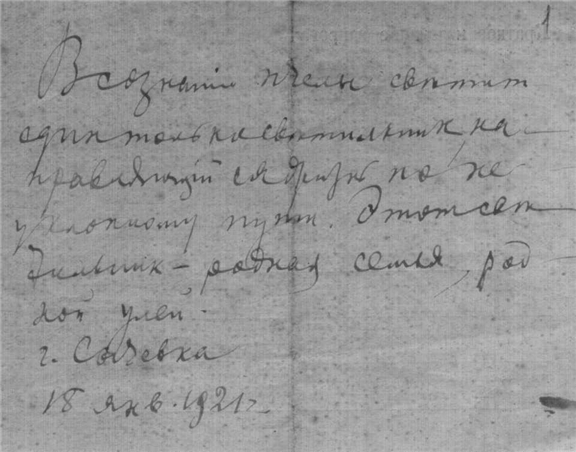 1
В сознании пчелы светит
один только светильник, на-
правляющий ея жизнь по не-
уклонному пути. Этот све-
тильник – родная семья, род-
ной улей.
г. Сычевка
18 янв. 1921 г.